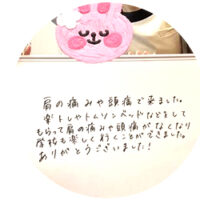 肩の痛みや頭痛で来ました。
楽トレやトムソンベッドなどをして
もらって肩の痛みや頭痛がなくなり
学校も楽しく行くことができました。
ありがとうございました!